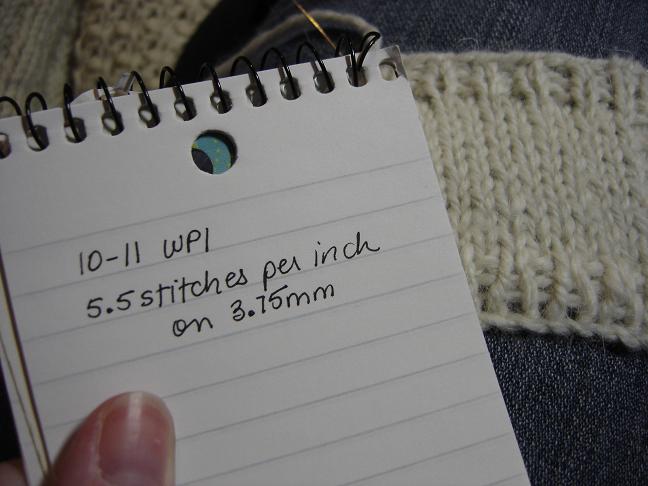 10-11 WPI
5.5 stitches per inch
on 3.75mm